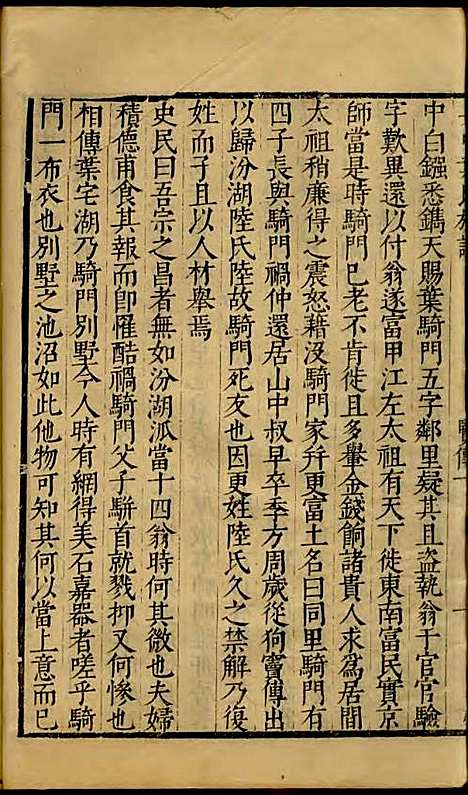 中白鏹悉鐫天賜葉騎門五字鄰里疑其且盜執翁于官官驗
字歎異還以付翁遂富甲江左太祖有天下徙東南富民實京
師當是時騎門已老不肯徙且多轝金錢餉諸貴人求爲居間
太祖稍廉得之震怒藉沒騎門家幷更富土名曰同里騎門有
四子長與騎門禍仲還居山中叔早卒季方周歲從狗竇傳出
以歸汾湖陸氏陸故騎門死友也因更姓陸氏久之禁解乃復
姓而子且以人材舉焉
史民曰吾宗之昌者無如汾湖派當十四翁時何其微也夫婦
積德甫食其報而卽罹酷禍騎門父子駢首就戮抑又何慘也
相傳葉宅湖乃騎門別墅今人時有網得美石嘉器者嗟乎騎
門一布衣也別墅之池沼如此他物可知其何以當上意而已